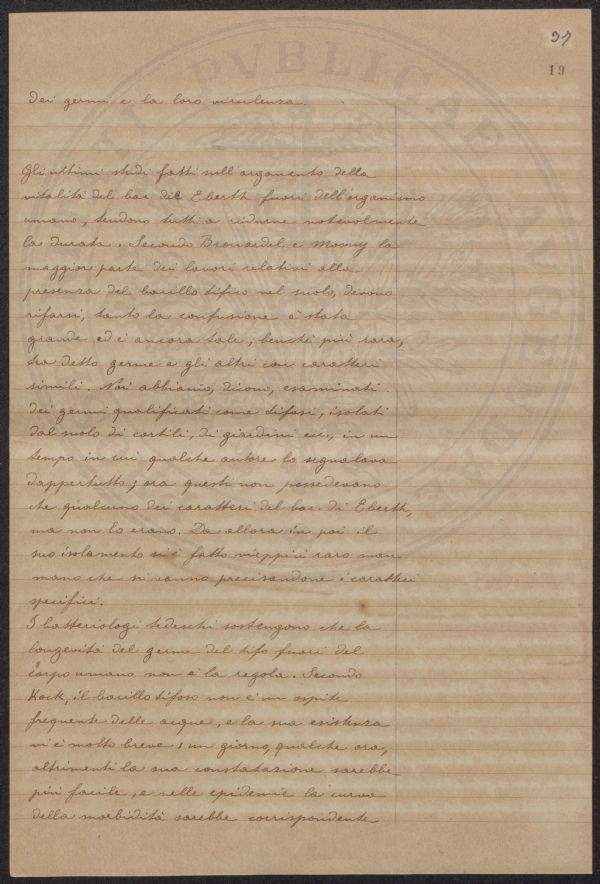 37
19
dei germi e la loro virulenza.
Gli ultimi studi fatti sull'argomento della
vitalità del bac. di Eberth fuori dell'organismo
umano, tendono tutti a ridurne notevolmente
la durata. Secondo Brouardel e Mosny la
maggior parte dei lavori relativi alla
presenza del bacillo tifico nel suolo, devono
rifarsi, tanto la confusione è stata
grande ed è ancora tale, benchè più rara,
tra detto germe e gli altri con caratteri
simili. Noi abbiamo, dicono, esaminati
dei germi qualificati come tifosi, isolati
dal suolo di cortili, di giardini ecc., in un
tempo in cui qualche autore lo segnalava
dappertutto; ora questi non possedevano
che qualcuno dei caratteri del bac. di Eberth,
ma non lo erano. Da allora in poi il
suo isolamento si è fatto vieppiù raro man
mano che si vanno precisandone i caratteri
specifici.
I batteriologi tedeschi sostengono che la
longevità del germe del tifo fuori del
corpo umano non è la regola. Secondo
Kock, il bacillo tifoso non è un ospite
frequente delle acque, e la sua esistenza
vi è molto breve: un giorno, qualche ora,
altrimenti la sua constatazione sarebbe
più facile, e nelle epidemie la curva
della morbidità sarebbe corrispondente